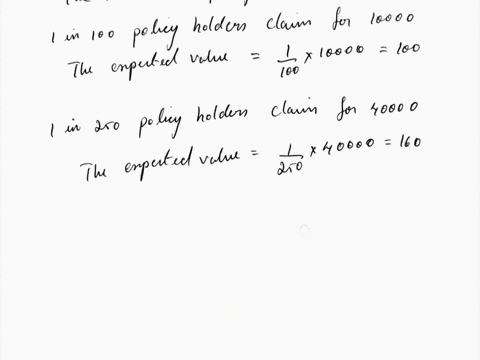 1 in 100 policy holders claim for 10000
The expected value = 1/100 × 10000 = 100
1 in 250 policy holders claim for 40000
The expected value = 1/250 × 40000 = 160